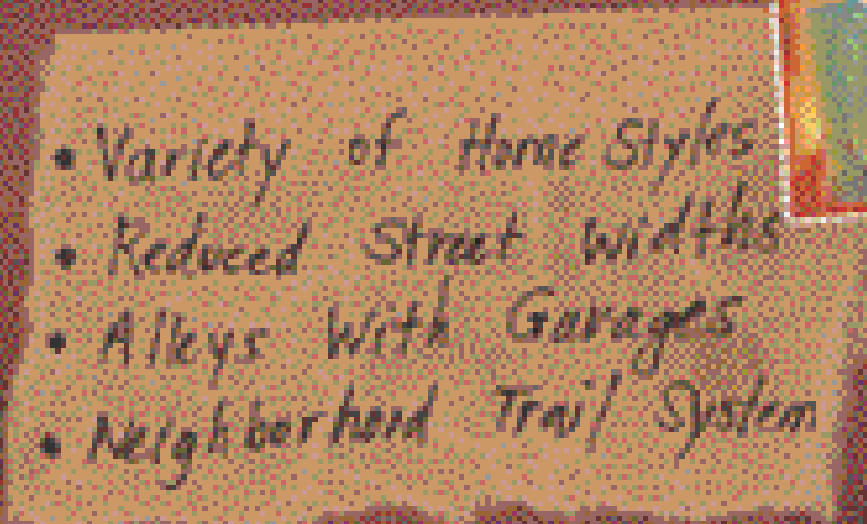 • Variety of Home Styles
• Reduced Street Widths
• Alleys With Garages
• Neighborhood Trail System